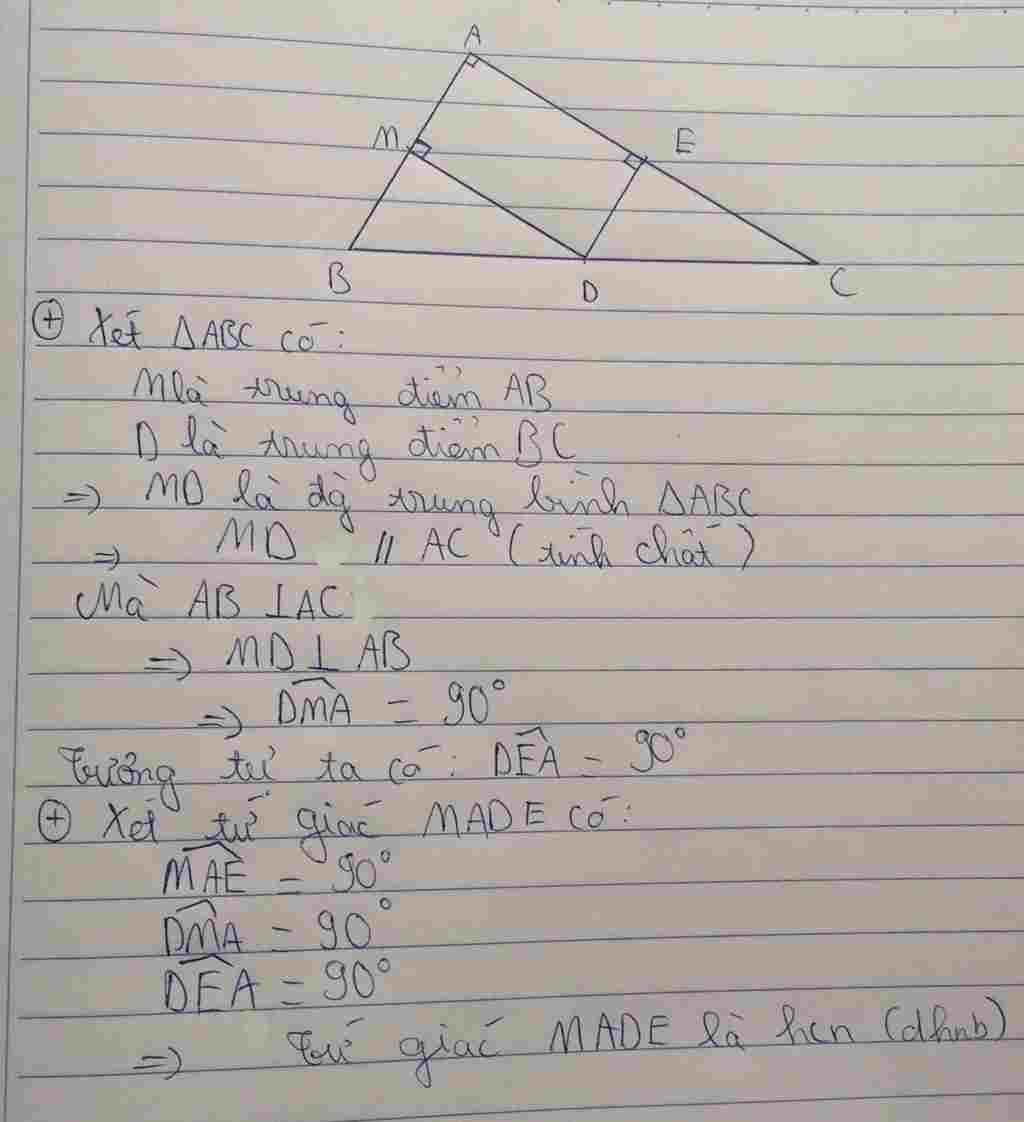 A
M
E
B
D
C
⊕ Xét ΔABC có:
M là trung điểm AB
D là trung điểm BC
=> MD là đg trung bình ΔABC
=> MD // AC (tính chất)
Mà AB ⊥ AC
=> MD ⊥ AB
=> DMA = 90°
Tương tự ta có: DEA = 90°
⊕ Xét tứ giác MADE có:
MAE = 90°
DMA = 90°
DEA = 90°
=> Tứ giác MADE là hcn (dhnb)